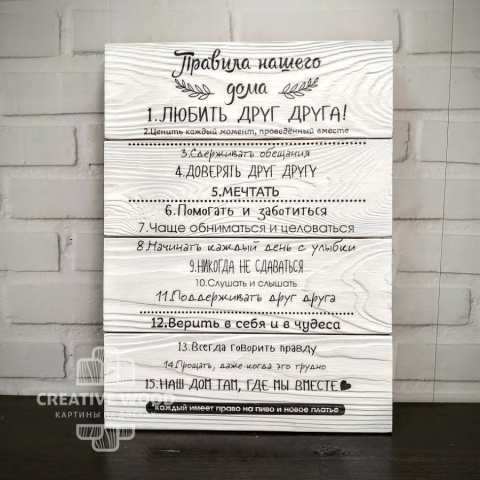 Правила нашего
дома
1.ЛЮБИТЬ ДРУГ ДРУГА!
2.Ценить каждый момент, проведённый вместе
3.Сдерживать обещания
4.ДОВЕРЯТЬ ДРУГ ДРУГУ
5.МЕЧТАТЬ
6.Помогать и заботиться
7.Чаще обниматься и целоваться
8.Начинать каждый день с улыбки
9.НИКОГДА НЕ СДАВАТЬСЯ
10.Слушать и слышать
11.Поддерживать друг друга
12.Верить в себя и в чудеса
13.Всегда говорить правду
14.Прощать, даже когда это трудно
15.НАШ ДОМ ТАМ, ГДЕ МЫ ВМЕСТЕ
каждый имеет право на пиво и новое платье
CREATIVE WOOD
КАРТИНЫ